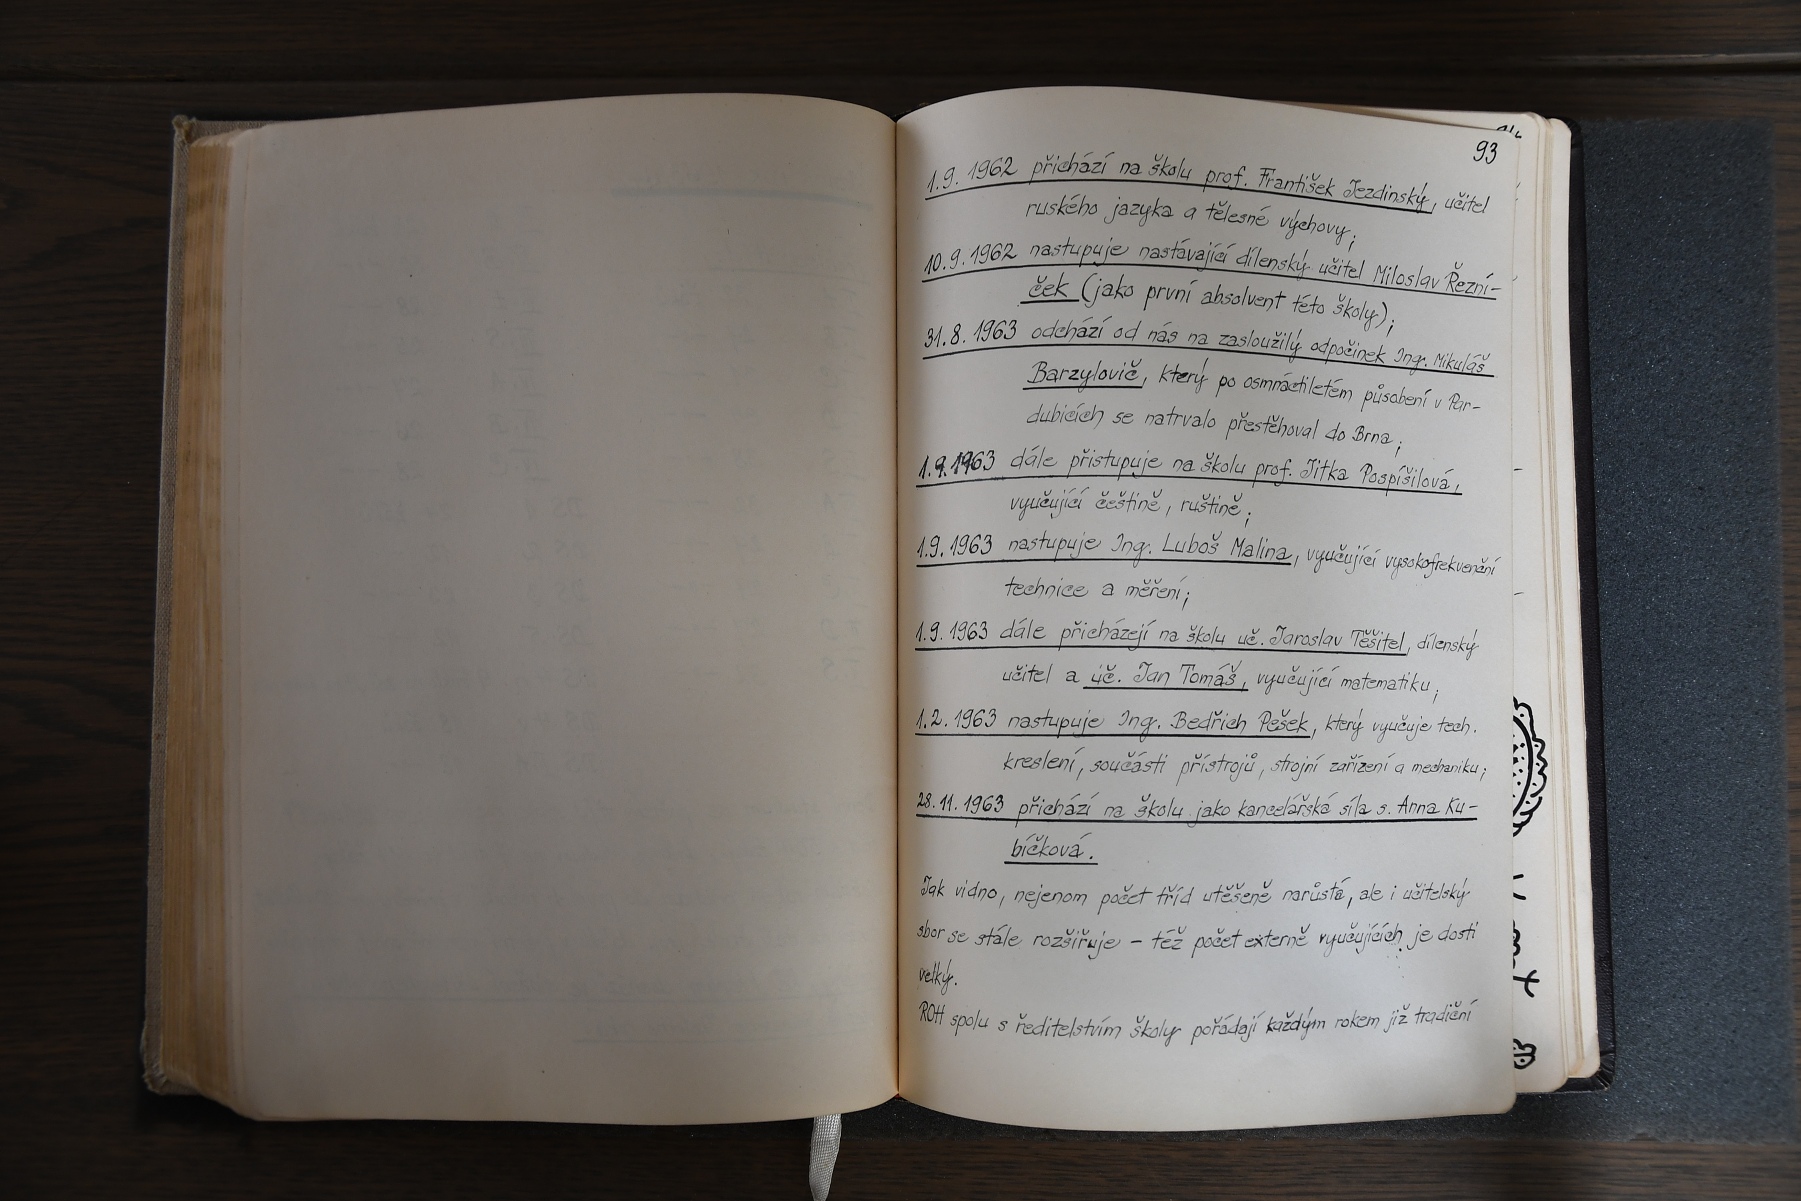 93
1.9.1962 přichází na školu prof. František Jezdinský, učitel
ruského jazyka a tělesné výchovy;
10.9.1962 nastupuje nastávající dílenský učitel Miloslav Řezní-
ček (jako první absolvent této školy);
31.8.1963 odchází od nás na zasloužilý odpočinek Ing. Mikuláš
Barzylovič, který po osmnáctiletém působení v Par-
dubicích se natrvalo přestěhoval do Brna;
1.9.1963 dále přistupuje na školu prof. Jitka Pospíšilová,
vyučující češtině, ruštině;
1.9.1963 nastupuje Ing. Luboš Malina, vyučující vysokofrekvenční
technice a měření;
1.9.1963 dále přicházejí na školu uč. Jaroslav Těšitel, dílenský
učitel a uč. Jan Tomáš, vyučující matematiku;
1.2.1963 nastupuje Ing. Bedřich Pešek, který vyučuje tech.
kreslení, součásti přístrojů, strojní zařízení a mechaniku;
28.11.1963 přichází na školu jako kancelářská síla s. Anna Ku-
bíčková.
Jak vidno, nejenom počet tříd utěšeně narůstá, ale i učitelský
sbor se stále rozšiřuje – též počet externě vyučujících je dosti
velký.
ROH spolu s ředitelstvím školy pořádají každým rokem již tradiční